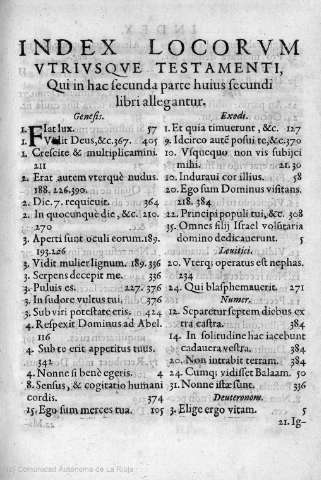 INDEX LOCORVM
VTRIVSQVE TESTAMENTI,
Qui in hac secunda parte huius secundi
libri allegantur.
Genesis.
1. Fiat lux. 57
1. Vidit Deus, &c. 367. 405
1. Crescite & multiplicamini.
211
2. Erat autem vterq; nudus.
188. 226. 390.
2. Die. 7. requieuit. 364
2. In quocunque die, &c. 210.
270
3. Aperti sunt oculi eorum. 189.
193. 226
3. Vidit mulier lignum. 189. 336
3. Serpens decepit me. 336
3. Puluis es. 227. 376
3. In sudore vultus tui, 376
3. Sub viri potestate eris. 424
4. Respexit Dominus ad Abel.
116
4. Sub te erit appetitus tuus.
342
4. Nonne si benè egeris. 4
8. Sensus, & cogitatio humani
cordis. 374
15. Ego sum merces tua. 105
Exodi.
1. Et quia timuerunt, &c. 127
9. Idcirco autē posui te, &c. 370
10. Vsquequo non vis subijci
mihi. 21. 30
10. Induraui cor illius. 58
20. Ego sum Dominus visitans.
218. 384
22. Principi populi tui, &c. 308
35. Omnes filij Israel volūtaria
domino dedicauerunt. 5
Leuitici.
20. Vterq; operatus est nephas.
234
24. Qui blasphemauerit. 271
Numer.
12. Separetur septem diebus ex
tra castra. 384
14. In solitudine hac iacebunt
cadauera vestra. 384
20. Non intrabit terram. 384
24. Cumq; vidisset Balaam. 50
31. Nonne istæ sunt. 336
Deuteronom.
3. Elige ergo vitam. 5
21. Ig-
(c) Comunidad Autónoma de La Rioja